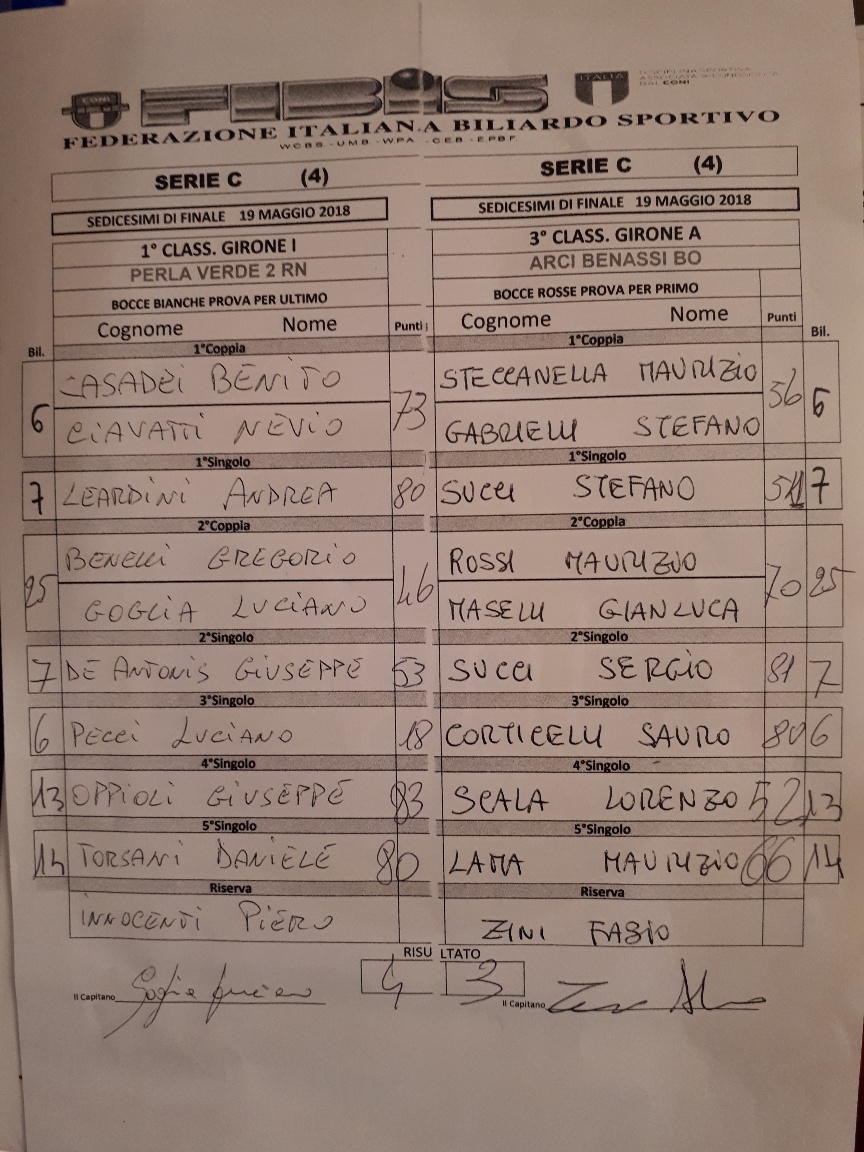 CONI FIBiS ITALIA
FEDERAZIONE ITALIANA BILIARDO SPORTIVO
WCBS - UMB - WPA - CEB - EPBF
SERIE C (4) SERIE C (4)
SEDICESIMI DI FINALE 19 MAGGIO 2018 SEDICESIMI DI FINALE 19 MAGGIO 2018
1° CLASS. GIRONE I 3° CLASS. GIRONE A
PERLA VERDE 2 RN ARCI BENASSI BO
BOCCE BIANCHE PROVA PER ULTIMO BOCCE ROSSE PROVA PER PRIMO
Cognome Nome Punti Cognome Nome Punti
Bil. 1°Coppia 1°Coppia Bil.
CASADEI BENITO STECCANELLA MAURIZIO
6 73 56 6
CIAVATTI NEVIO GABRIELLI STEFANO
1°Singolo 1°Singolo
7 LEARDINI ANDREA 80 SUCCI STEFANO 7
2°Coppia 2°Coppia
BENELLI GREGORIO ROSSI MAURIZIO
25 46 70 25
GOGLIA LUCIANO MASELLI GIANLUCA
2°Singolo 2°Singolo
7 DE ANTONIS GIUSEPPE 53 SUCCI SERGIO 81 7
3°Singolo 3°Singolo
6 PECCI LUCIANO 18 CORTICELLI SAURO 80 6
4°Singolo 4°Singolo
13 OPPIOLI GIUSEPPE 83 SCALA LORENZO 52 13
5°Singolo 5°Singolo
14 TORSANI DANIELE 80 LAMA MAURIZIO 66 14
Riserva Riserva
INNOCENTI PIERO ZINI FABIO
RISU LTATO
4 3
Il Capitano Goglia Luciano Il Capitano